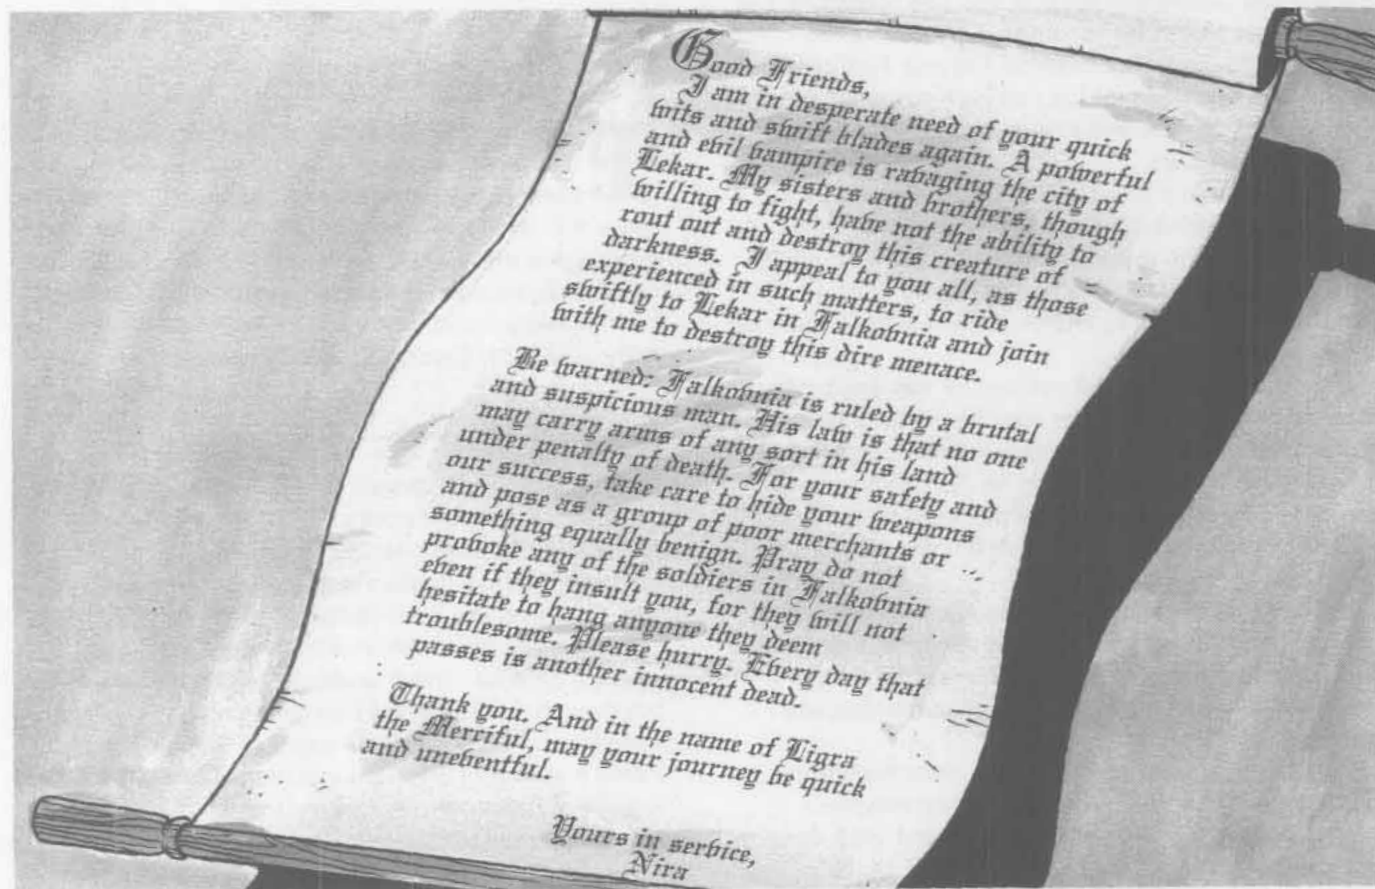 Good Friends,
I am in desperate need of your quick
wits and swift blades again. A powerful
and evil vampire is ravaging the city of
Lekar. My sisters and brothers, though
willing to fight, have not the ability to
rout out and destroy this creature of
darkness. I appeal to you all, as those
experienced in such matters, to ride
swiftly to Lekar in Falkovnia and join
with me to destroy this dire menace.
Be warned: Falkovnia is ruled by a brutal
and suspicious man. His law is that no one
may carry arms of any sort in his land
under penalty of death. For your safety and
our success, take care to hide your weapons
and pose as a group of poor merchants or
something equally benign. Pray do not
provoke any of the soldiers in Falkovnia
even if they insult you, for they will not
hesitate to hang anyone they deem
troublesome. Please hurry. Every day that
passes is another innocent dead.
Thank you. And in the name of Ligra
the Merciful, may your journey be quick
and uneventful.
Yours in service,
Nira